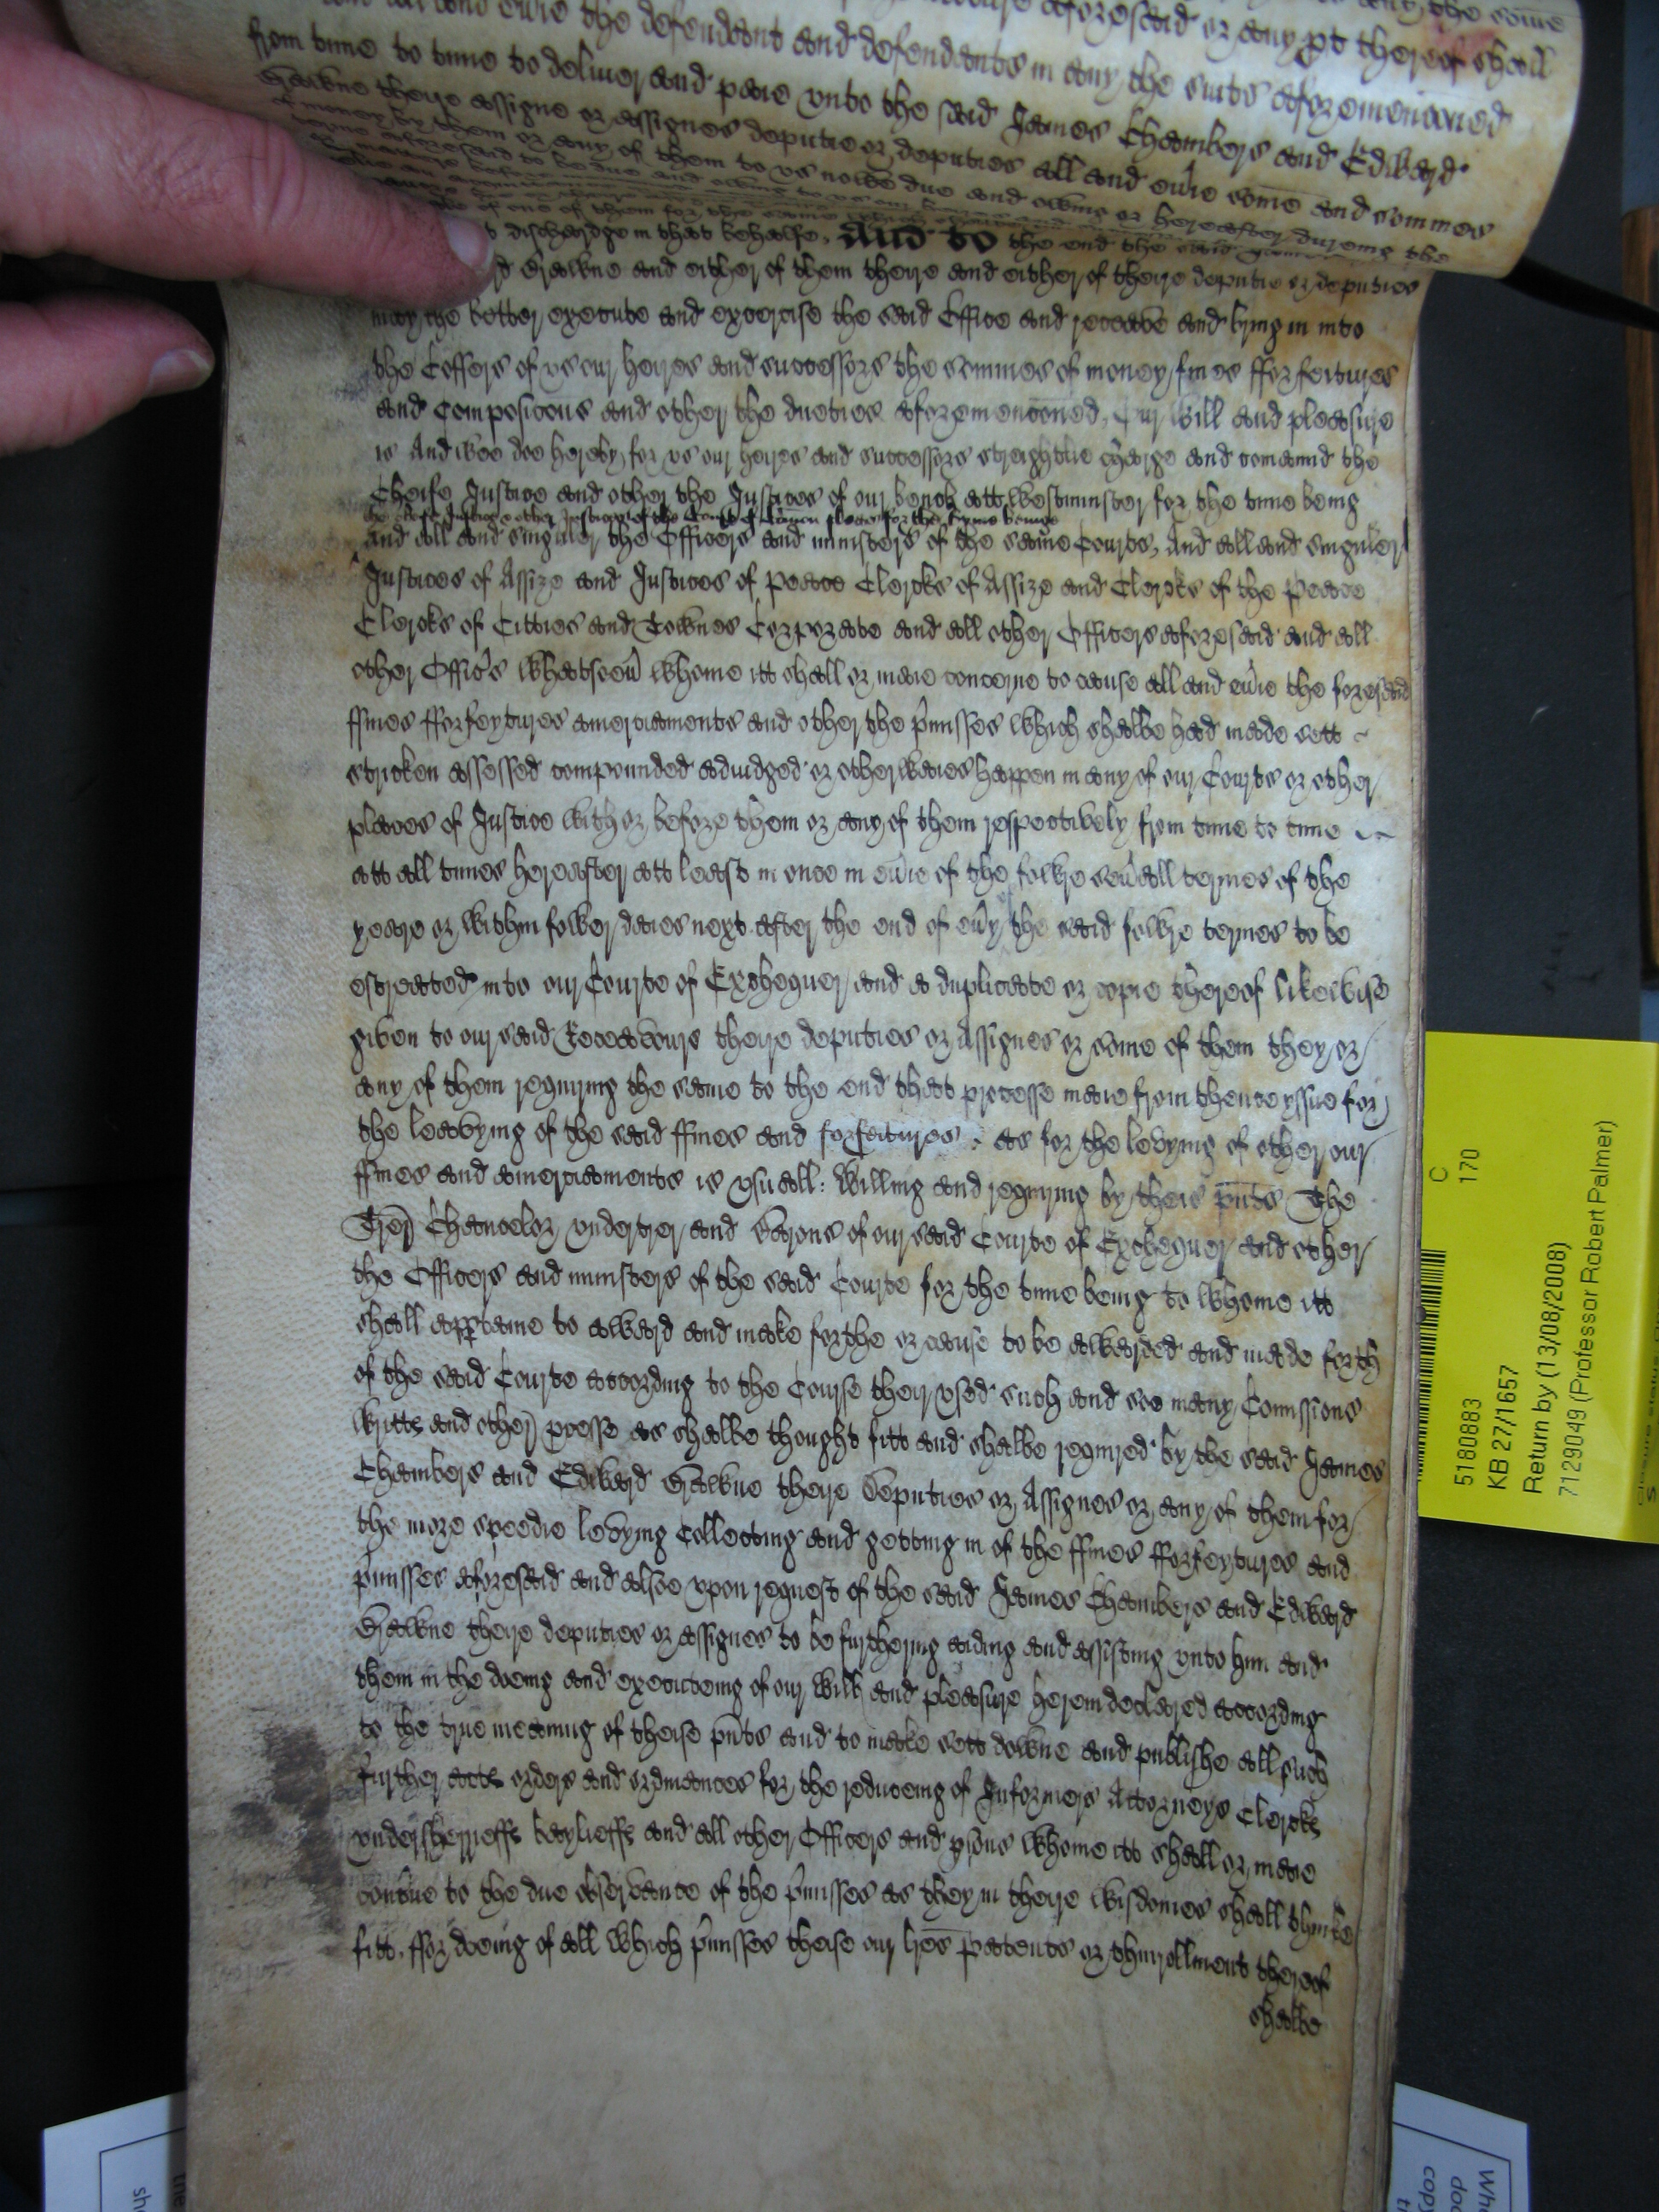 any, the same
aforesaid or any pt thereof shall
and all and eu'ie the defendant and defendants in any the suits aforemenconed
from time to time to deliuer and paie vnto the said James Chambers and Edward
Grawne theire assigne or assignes deputie or deputies all and eu'ie some and sommes
of money by them or any of them to vs nowe due and owing or hereafter dureing the
terme aforesaid to be due and owing to vs
of one of them for the same
dischardge in that behalfe. And to the end the said James
Grawne and either of them theire and either of theire deputie or deputies
may the better execute and exercise the said Office and receave and bring in into
the Coffers of vs our heires and successors the sommes of money fines fforfeitures
and Composicons and other the dueties aforemenconed, Our will and pleasure
is And wee doe hereby for vs our heires and successors straightlie charge and comaund the
Cheife Justice and other the Justices of our bench att westminster for the time being
the cheife Justice & other Justices of the Court of Comon pleas for the tyme beinge
and all and singuler the Officers and ministers of the same Courts, And all and singuler
Justices of Assize and Justices of Peace Clerckes of Assize and Clerckes of the Peace
Clerckes of Citties and Townes Corporate and all other Officers aforesaid and all
other Offic's whatsoeu' whome itt shall or maie concerne to cause all and eu'ie the foresaid
ffines fforfeytures amerciaments and other the p'misses which shalbe had made sett
stricken assessed compounded adiudged or otherwaies happen in any of our Courts or other
places of Justice with or before them or any of them respectively from time to time
att all times hereafter att least in once in eu'ie of the fowre seu'all termes of the
yeare or within fower daies next after the end of eu'y the said fowre termes to be
estreated into our Courte of Exchequer and a duplicate or copie thereof likewise
given to our said Receavours theire deputies or Assignes or some of them they or
any of them requiring the same to the end that processe maie from thence yssue for
the leavying of the said ffines and forfeitures : as for the levying of other our
ffines and amerciaments is vsuall: Willing and requiring by theis p'nts The
Trer Chancelor vndertrer and Barons of our said Courte of Exchequer and other
the Officers and ministers of the said Courte for the time being to whome itt
shall appertaine to award and make forthe or cause to be awarded and made forth
of the said Courte according to the Course their vsed such and soe many Comissions
writts and other p'cesse as shalbe thought fitt and shalbe required by the said James
Chambers and Edward Grawne theire Deputies or Assignes or any of them for
the more speedie levying Collecting and getting in of the ffines fforfeytures and
p'misses aforesaid and alsoe vpon request of the said James Chambers and Edward
Grawne theire deputies or assignes to be furthering aiding and assisting vnto him and
them in the doeing and executeing of our will and pleasure herein declared according
to the true meaning of theise p'nts and to make sett downe and publishe all such
further acts orders and ordinances for the reduceing of Informers Attorneys Clercks
vndersherieffs bayliffs and all other Officers and p'sons whome itt shall or maie
conc'ne to the due observance of the p'misses as they in theire wisdomes shall thincke
fitt. ffor doeing of all which p'misses theise our l'res patents or thinrollment thereof
shalbe
C
170
5180883
KB 27/1657
Return by (13/08/2008)
7129049 (Professor Robert Palmer)